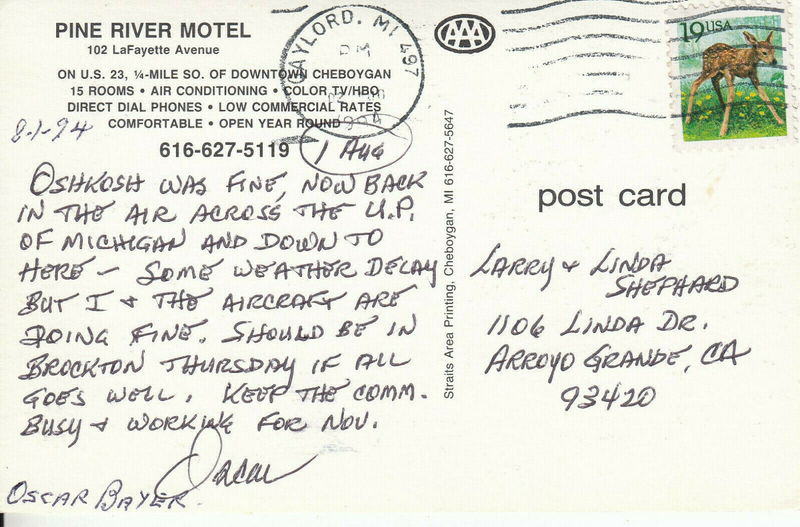 PINE RIVER MOTEL
102 LaFayette Avenue
ON U.S. 23, ¼-MILE SO. OF DOWNTOWN CHEBOYGAN
15 ROOMS • AIR CONDITIONING • COLOR TV/HBO
DIRECT DIAL PHONES • LOW COMMERCIAL RATES
COMFORTABLE • OPEN YEAR ROUND
616-627-5119
8-1-94
1 AUG
OSHKOSH WAS FINE, NOW BACK
IN THE AIR ACROSS THE U.P.
OF MICHIGAN AND DOWN TO
HERE – SOME WEATHER DELAY
BUT I & THE AIRCRAFT ARE
DOING FINE. SHOULD BE IN
BROCKTON THURSDAY IF ALL
GOES WELL. KEEP THE COMM.
BUSY & WORKING FOR NOV.
Oscar
OSCAR BAYER.
GAYLORD, MI 497
PM
1994
AAA
19USA
Straits Area Printing, Cheboygan, MI 616-627-5647
post card
LARRY & LINDA
SHEPHARD
1106 LINDA DR.
ARROYO GRANDE, CA
93420